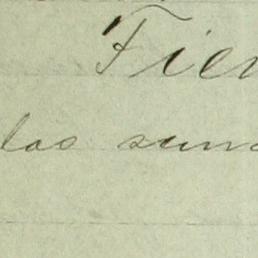 Tien
las suma